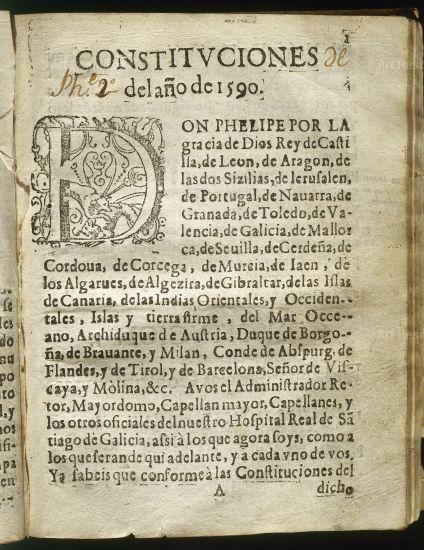 1
CONSTITVCIONES de
Phe. 2º del año de 1590.
DON PHELIPE POR LA
gracia de Dios Rey de Casti
lla, de Leon, de Aragon, de
las dos Sizilias, de Ierusalen,
de Portugal, de Nauarra, de
Granada, de Toledo, de Va-
lencia, de Galicia, de Mallor
ca, de Seuilla, de Cerdeña, de
Cordoua, de Corcega, de Murcia, de Iaen, de
los Algarues, de Algezira, de Gibraltar, de las Islas
de Canaria, de las Indias Orientales, y Occiden-
tales, Islas y tierra firme, del Mar Occe-
ano, Archiduque de Austria, Duque de Borgo-
ña, de Brauante, y Milan, Conde de Abspurg, de
Flandes, y de Tirol, y de Barcelona, Señor de Vis-
caya, y Molina, &c. A vos el Administrador Re-
tor, Mayordomo, Capellan mayor, Capellanes, y
los otros oficiales del nuestro Hospital Real de Sã
tiago de Galicia, assi à los que agora soys, como a
los que seran de qui adelante, y a cada vno de vos.
Ya sabeis que conforme à las Constituciones del
A dicho